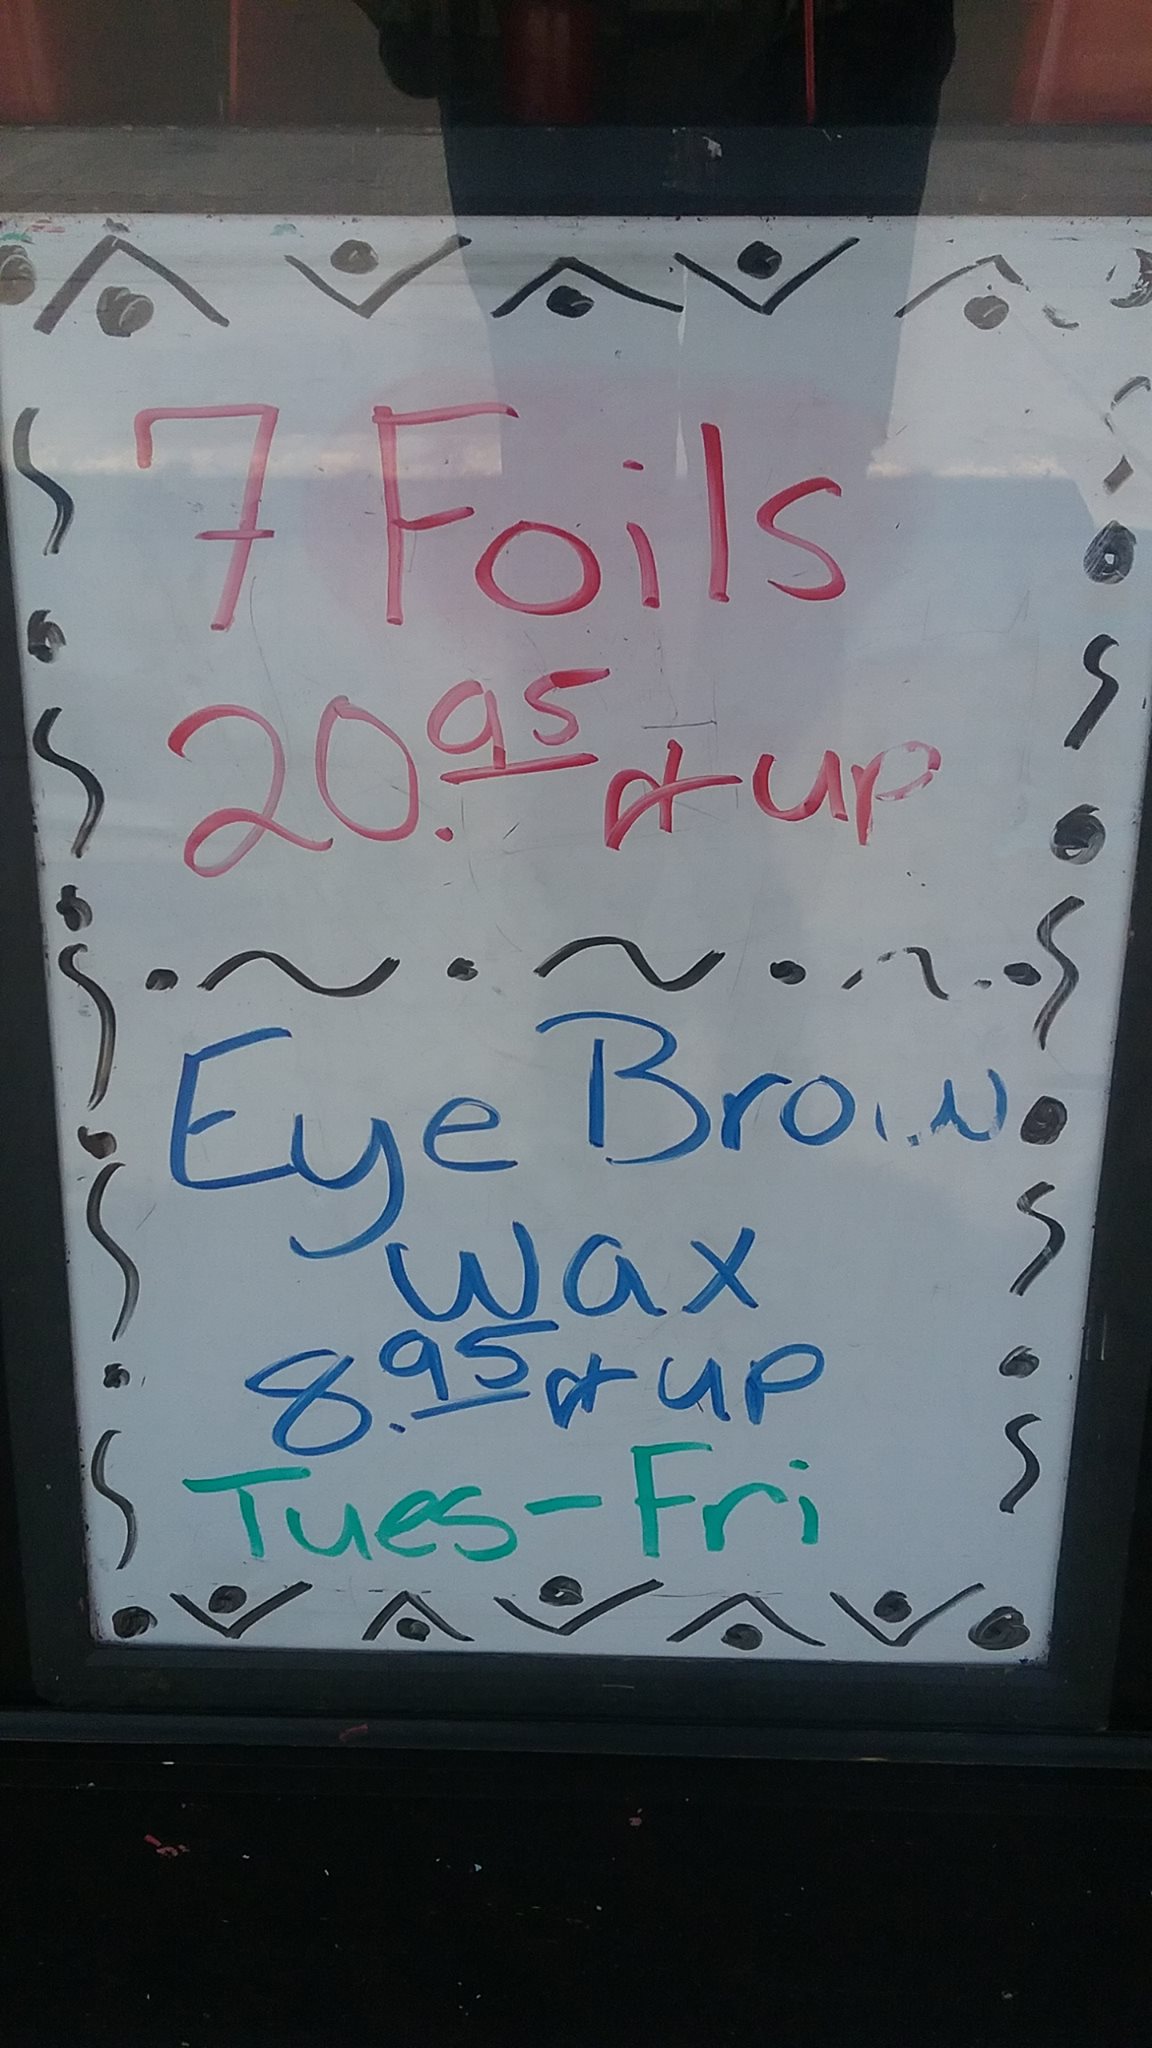 7 Foils
20.95 & up
Eye Brow
wax
8.95 & up
Tues-Fri